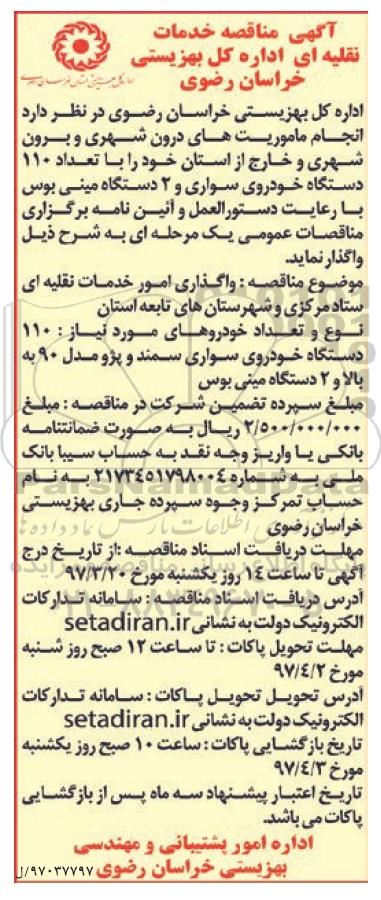 آگهی مناقصه خدمات
نقلیه ای اداره کل بهزیستی
خراسان رضوی
اداره کل بهزیستی خراسان رضوی در نظر دارد
انجام ماموریت های درون شهری و برون
شهری و خارج از استان خود را با تعداد ۱۱۰
دستگاه خودروی سواری و ۲ دستگاه مینی بوس
با رعایت دستورالعمل و آئین نامه برگزاری
مناقصات عمومی یک مرحله ای به شرح ذیل
واگذار نماید.
موضوع مناقصه : واگذاری امور خدمات نقلیه ای
ستاد مرکزی و شهرستان های تابعه استان
نوع و تعداد خودروهای مورد نیاز : ۱۱۰
دستگاه خودروی سواری سمند و پژو مدل ۹۰ به
بالا و ۲ دستگاه مینی بوس
مبلغ سپرده تضمین شرکت در مناقصه : مبلغ
۲/۵۰۰/۰۰۰/۰۰۰ ریال به صورت ضمانتنامه
بانکی یا واریز وجه نقد به حساب سیبا بانک
ملی به شماره ۲۱۷۳۴۵۱۷۹۸۰۰۴ به نام
حساب تمرکز وجوه سپرده جاری بهزیستی
خراسان رضوی
مهلت دریافت اسناد مناقصه :از تاریخ درج
آگهی تا ساعت ۱٤ روز یکشنبه مورخ ۹۷/۳/۲۰
آدرس دریافت اسناد مناقصه : سامانه تدارکات
الکترونیک دولت به نشانی setadiran.ir
مهلت تحویل پاکات : تا ساعت ۱۲ صبح روز شنبه
مورخ ۹۷/٤/۲
آدرس تحویل تحویل پاکات : سامانه تدارکات
الکترونیک دولت به نشانی setadiran.ir
تاریخ بازگشایی پاکات : ساعت ۱۰ صبح روز یکشنبه
مورخ ۹۷/٤/۳
تاریخ اعتبار پیشنهاد سه ماه پس از بازگشایی
پاکات می باشد.
اداره امور پشتیبانی و مهندسی
بهزیستی خراسان رضوی
۹۷۰۳۷۷۹۷/ل
ParsNamadData